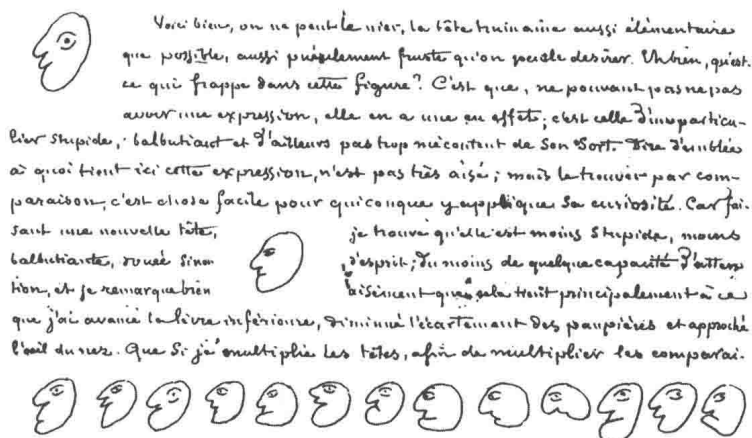 Voici bien, on ne peut le nier, la tête humaine aussi élémentaire
que possible, aussi puérilement fruste qu'on puisse le désirer. Eh bien, qu'est-
ce qui frappe dans cette figure? C'est que, ne pouvant pas ne pas
avoir une expression, elle en a une en effet; c'est celle d'un particu-
lier stupide, balbutiant et d'ailleurs pas trop mécontent de son sort. Dire d'emblée
à quoi tient ici cette expression, n'est pas très aisé; mais le trouver par com-
paraison, c'est chose facile pour quiconque y applique sa curiosité. Car fai-
sant une nouvelle tête, je trouve qu'elle est moins stupide, moins
balbutiante, douée sinon d'esprit, du moins de quelque capacité d'atten-
tion, et je remarque bien aisément que cela tient principalement à ce
que j'ai avancé la lèvre inférieure, diminué l'écartement des paupières et approché
l'œil du nez. Que si je multiplie les têtes, afin de multiplier les comparai-